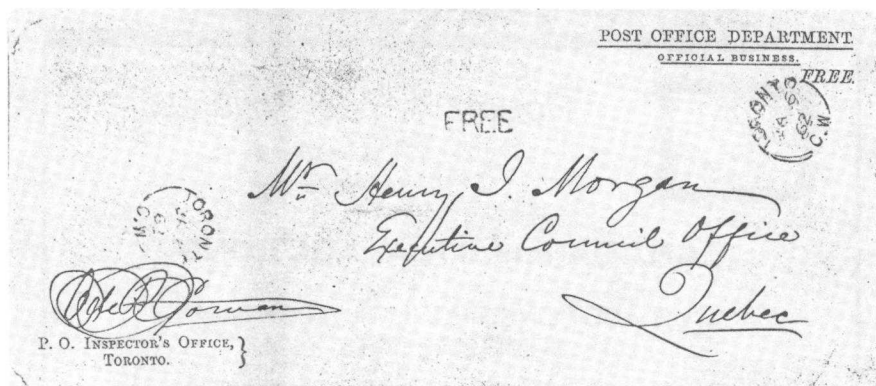 POST OFFICE DEPARTMENT.
OFFICIAL BUSINESS.
FREE.
TORONTO C.W.
FREE
Mr Henry J. Morgan
Executive Council Office
Quebec
TORONTO C.W.
Gowan
P. O. INSPECTOR'S OFFICE,
TORONTO.